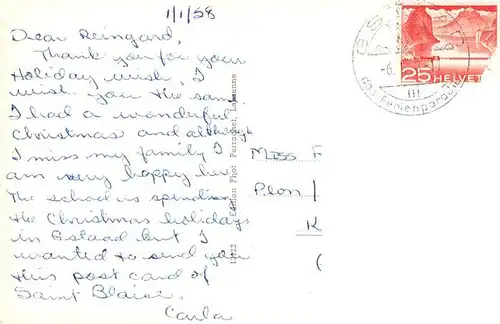 1/1/58
Dear Reingard,
Thank you for your
Holiday wish, I
wish you the same.
I had a wonderful
Christmas and although
I miss my family I
am very happy here.
The school is spending
the Christmas holidays
in Gstaad but I
wanted to send you
this post card of
Saint Blaise.
Carla
Edition Phot Perrochet, Lausanne
Miss
Plon /
K
25 HELVET
-6.
III